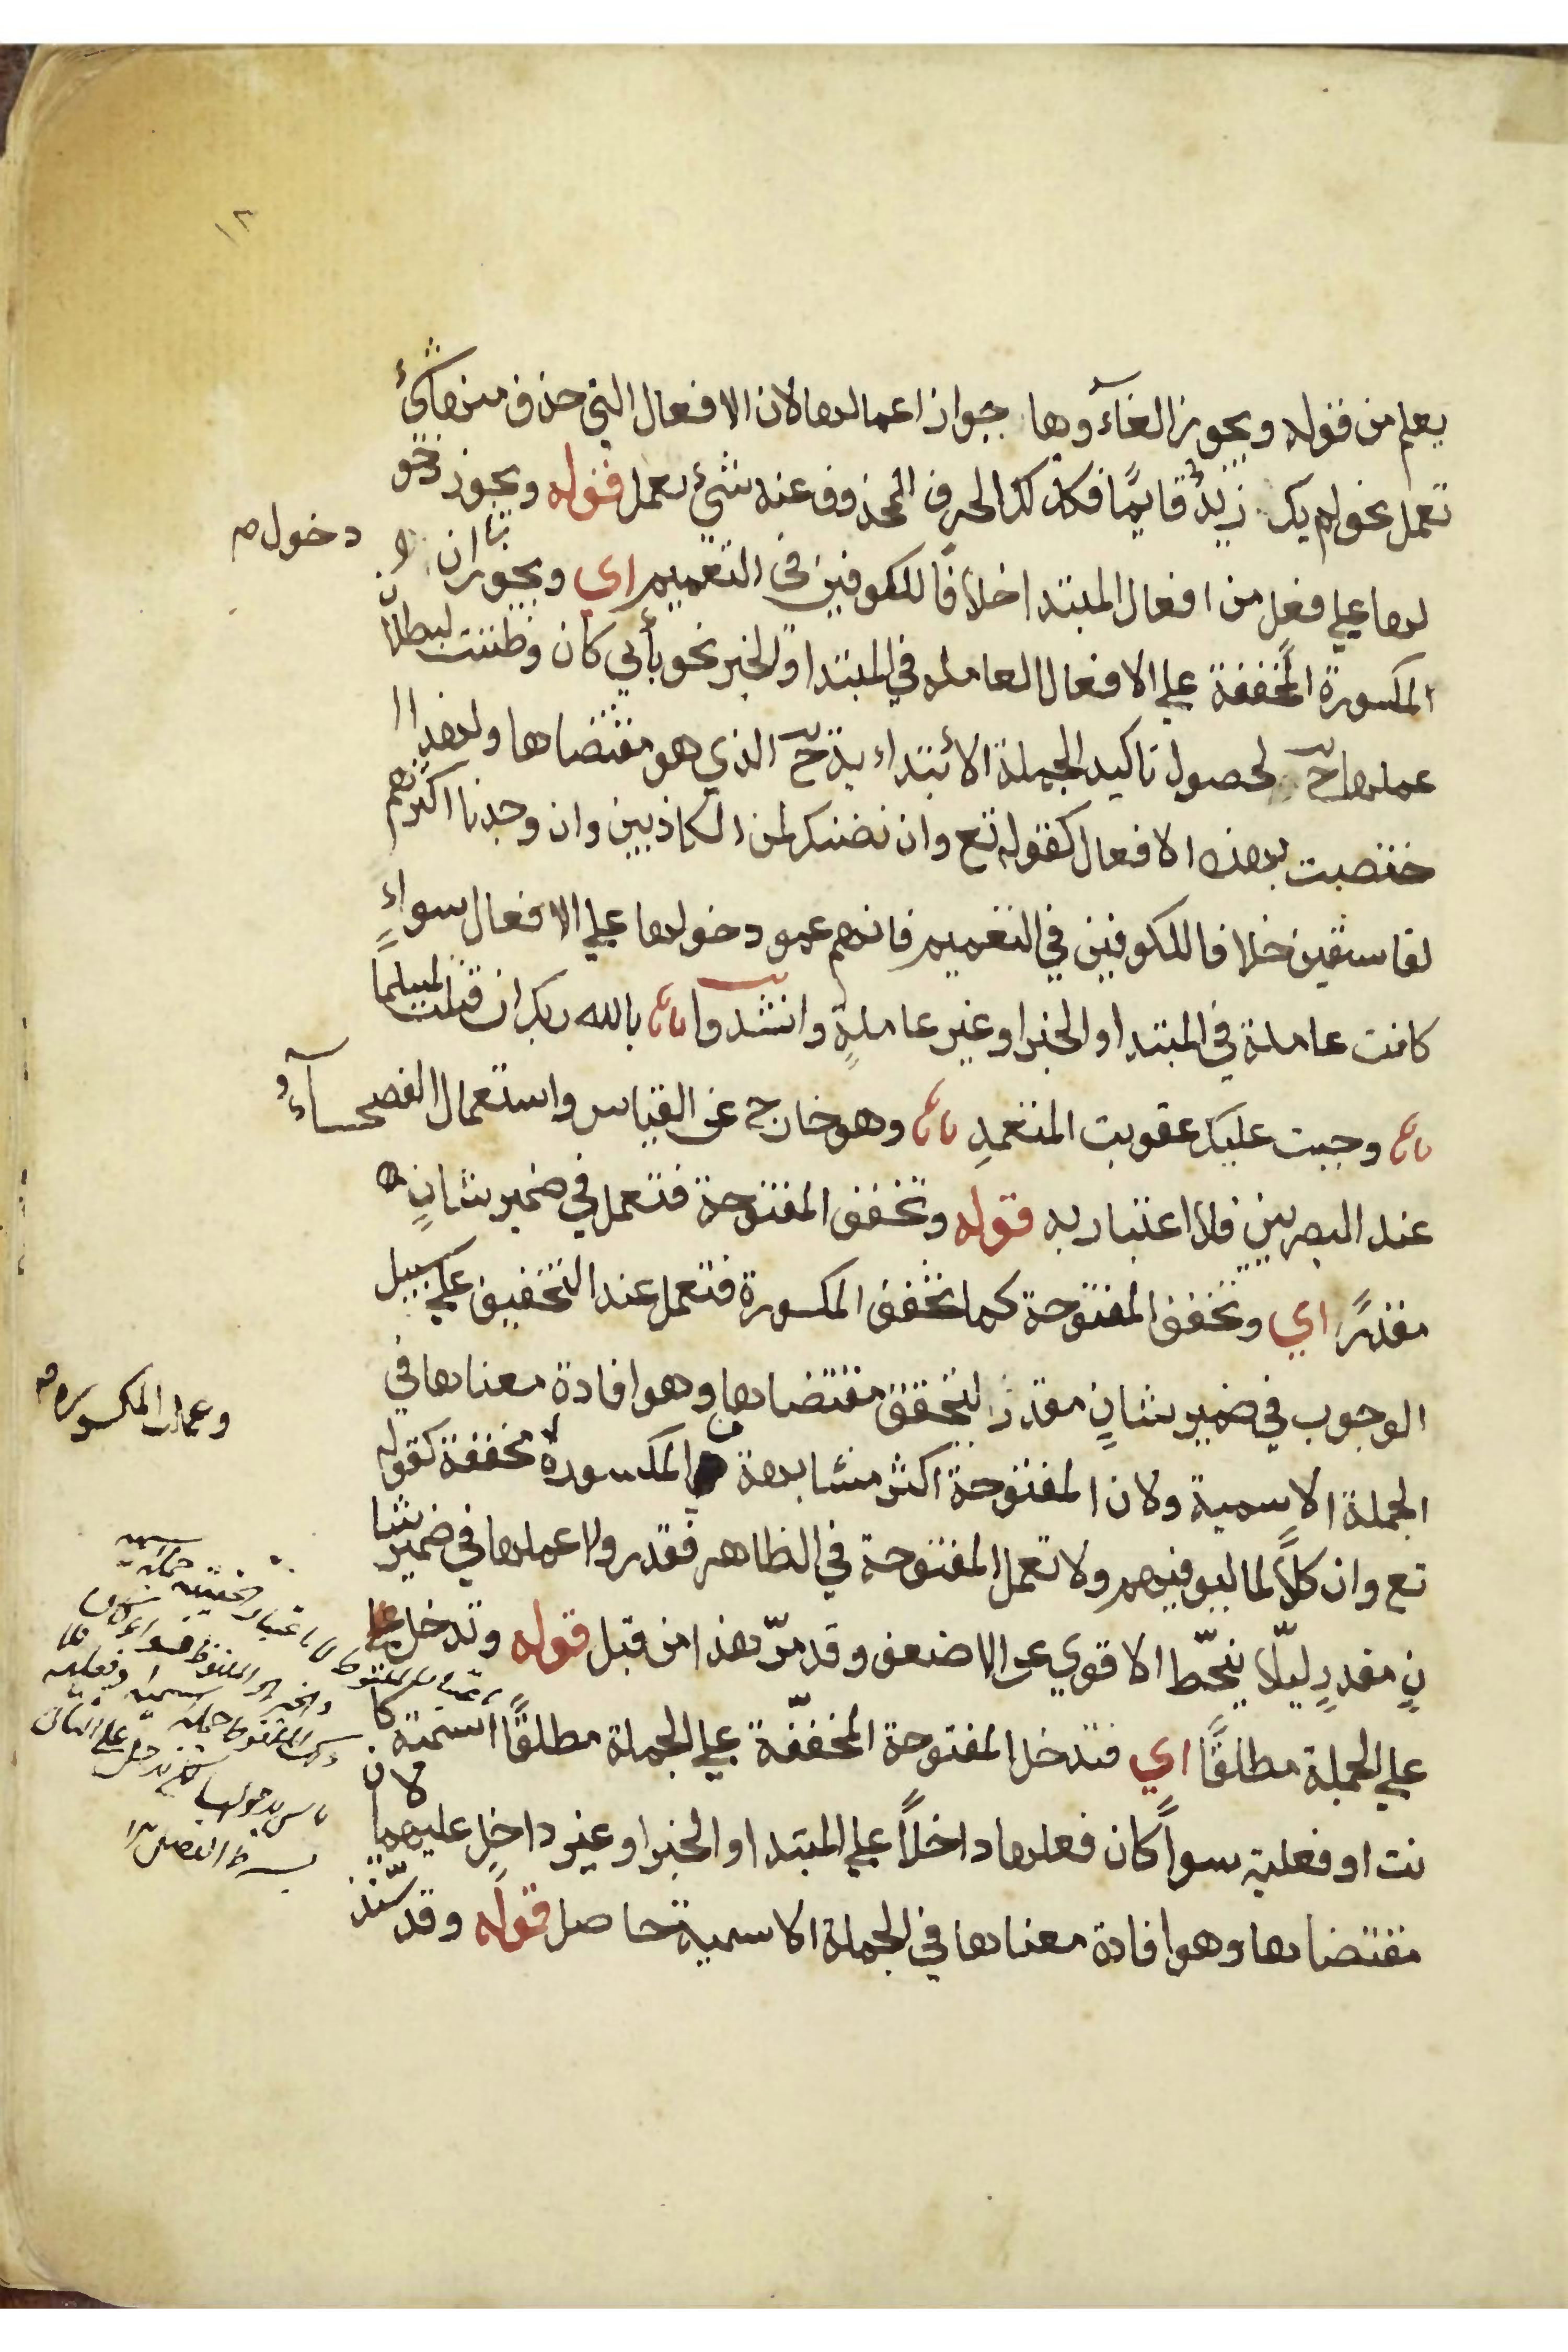 ١٢
يعلم من قوله ويجوز الغآءوها جواز اعمالها لان الافعال التي حذف منها شئ
تعمل نحو لم يك زيدٌ قايمًا فكذلك الحرف المحذوف عنه شئ يعمل قوله ويجوز دخو
دخول صح
لها علي فعل من افعال المبتدا خلافًا للكوفيين في التعميم اي ويجوز ان
المكسورة المخففة علي الافعال العاملة في المبتدا والخبر نحو بأبي كان وظننت لبطلان
عملها ح لحصول تاكيد الجملة الابتداء ية ح الذي هو مقتضاها ولهذا ا
ختصت بهذه الافعال كقوله تع وان نضنك لمن الكاذبين وان وجدنا اكثرهم
لفاسقين خلافا للكوفيين في التعميم فانهم عمو دخولها علي الافعال سواءٍ
كانت عاملة في المبتدا والخبر او غير عاملةٍ وانشدوا بالله ربك ان قتلت لمسلمًا
وجبت عليك عقوبت المتعمدِ وهو خارج عن القياس واستعمال الفصحآء و
عند البصريين فلا اعتبار به قوله وتخفف المفتوحة فتعمل في ضمير شانٍ
مقدرً اي وتخفف المفتوحة كما تخفف المكسورة فتعمل عند التخفيف علي سبيل
الوجوب في ضمير شانٍ مقدر لتحقق مقتضاها وهو افادة معناها في
وعملت المكسوره صح
الجملة الاسمية ولان المفتوحة اكثر مشابهة المكسورة مخففة كقوله
تع وان كلاً لما ليوفينهم ولا تعمل المفتوحة في الظاهر فقدروا اعمالها في ضمير شا
نٍ مقدرٍ ليلّا ينحّط الاقوي عن الاضعف وقد مرّ هذا من قبل قوله وتدخل
علي الجملة مطلقًا اي فتدخل المفتوحة المخففّة علي الجملة مطلقًا اسمية كا
نت او فعلية سواً كان فعلها داخلاً علي المبتدا والخبر او غير داخلٍ عليهما لان
مقتضاها وهو افادة معناها في الجملة الاسمية حاصل قوله وقد شذّ